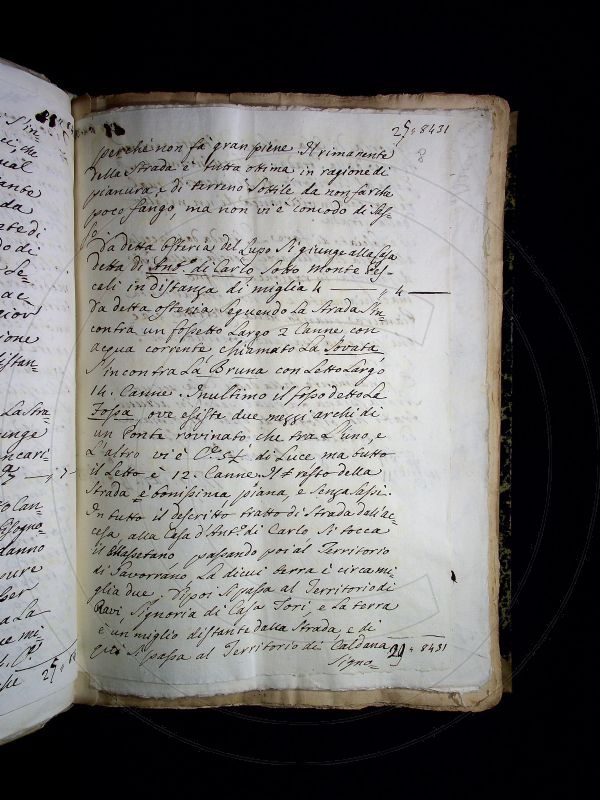 25 = 8431
8
perche non fà gran piene Il rimanente
della Strada è tutta ottima in ragione di
pianura e di terreno sottile da non far che
poco fango, ma non vi è comodo di Sas-
si
Da detta Osteria del Lupo si giunge alla Casa
detta di Ant.º di Carlo Sotto Monte Pes-
cali in distanza di miglia 4 — „ 4 —
Da detta osteria seguendo la Strada S'in-
contra un fossetto Largo 2 Canne con
acqua corrente chiamato La Sovata
S'incontra La Bruna con Letto Largo
14. Canne. Inultimo il fosso detto La
Fossa, ove esiste due mezzi archi di
un Ponte rovinato che tra L'uno, e
L'altro vi è C.e 5½ di Luce ma tutto
il Letto è 12. Canne Il resto della
Strada è bonissima piana, e senza sassi.
In tutto il descritto tratto di Strada dall'ac-
cesa, alla Casa d'Ant.º di Carlo Si tocca
il Massetano passando poi al Territorio
di Gavorrano, La di cui terra è circa mi-
glia due. Di poi Si passa al Territorio di
Ravi, Signoria di Casa Tori, e La terra
è un miglio distante dalla Strada, e di
qui Si passa al Territorio di Caldana
29 = 8431
Signo-
La Stra-
unge
7 — „ 7
danno
25 =